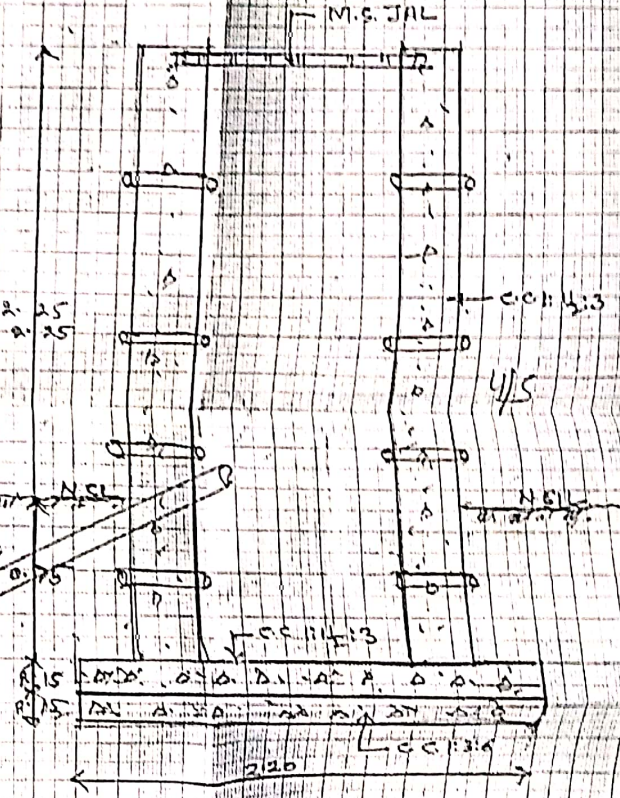 M.S. JAL
2.25
2.25
C.C 1:1½:3
4/5
N.S.L
N.S.L
0.75
C.C 1:1½:3
.15
.15
C.C 1:3:6
2.20